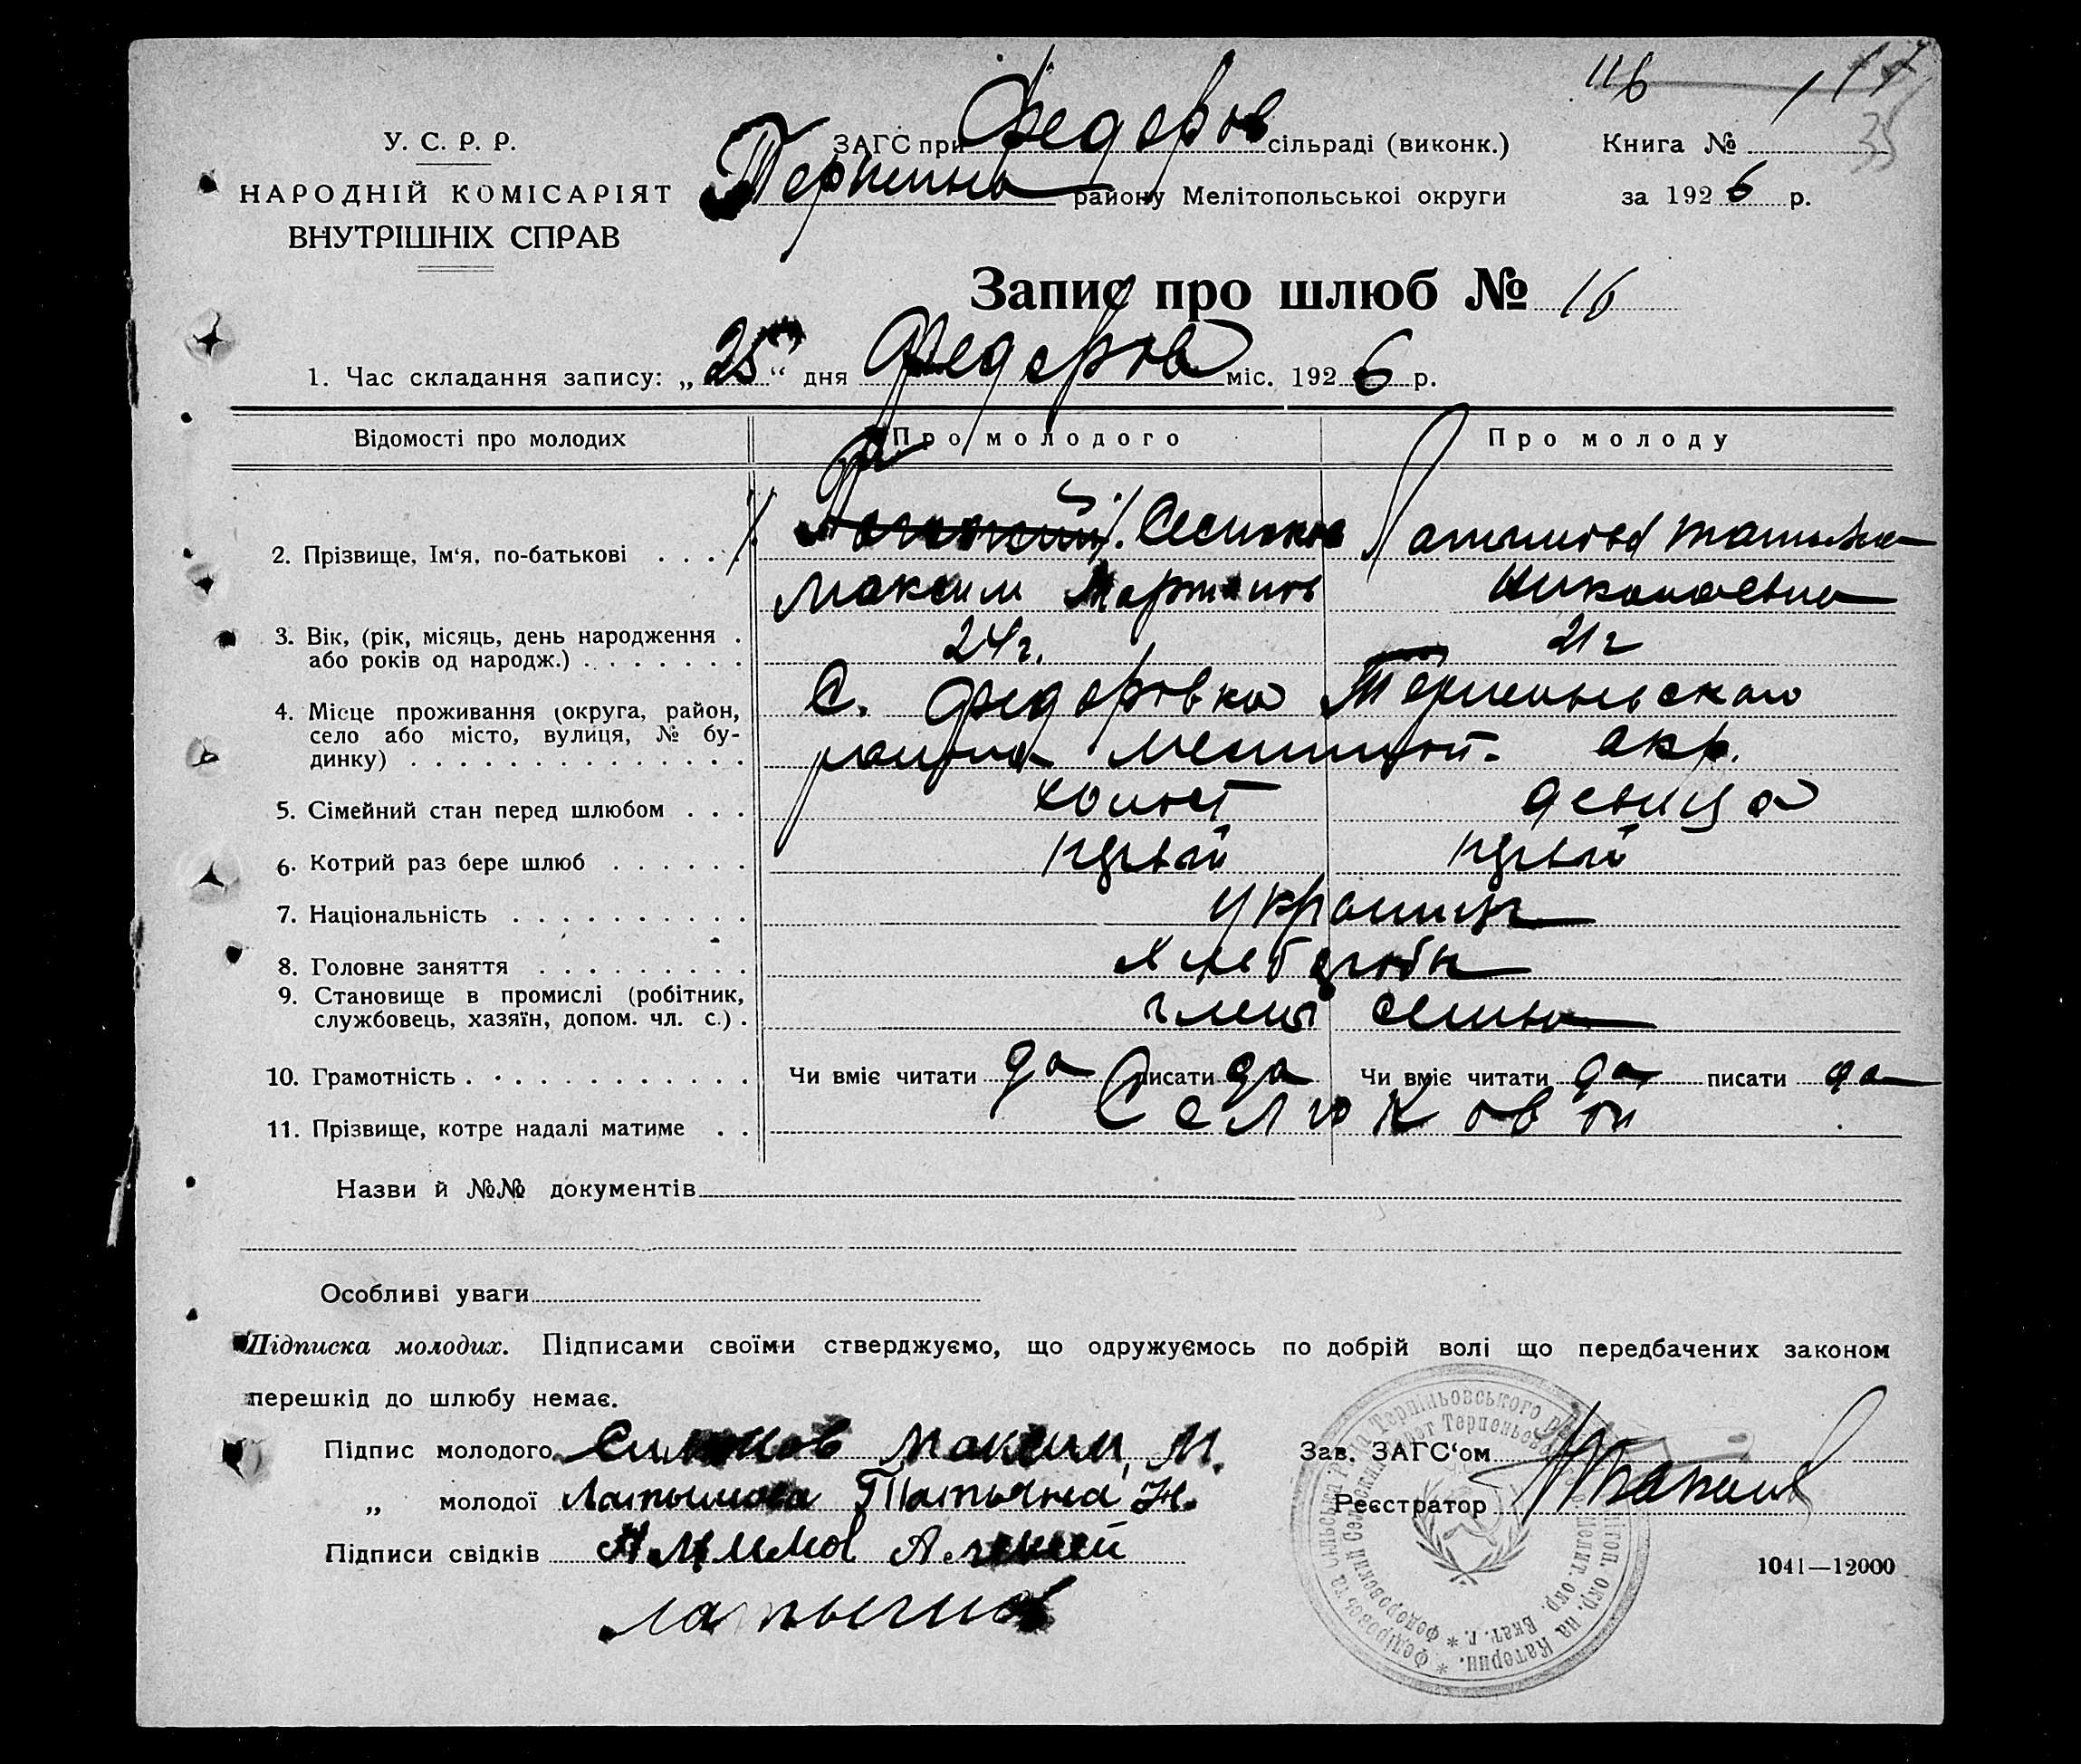 116 117
35
У. С. Р. Р.
НАРОДНІЙ КОМІСАРІЯТ
ВНУТРІШНІХ СПРАВ
ЗАГС при Федоров сільраді (виконк.)
Терпение району Мелітопольської округи
Книга №
за 1926 р.
Запис про шлюб № 16
1. Час складання запису: „25“ дня Федоров міс. 1926 р.
Відомості про молодих Про молодого Про молоду
2. Прізвище, Ім‘я, по-батькові
Татьяна
Максим Николаевна
3. Вік, (рік, місяць, день народження
або років од народж.) 24г. 21г
4. Місце проживання (округа, район,
село або місто, вулиця, № бу-
динку)
С. Федоровка Терпеньевскаго
района Мелитоп. окр.
5. Сімейний стан перед шлюбом холост девица
6. Котрий раз бере шлюб первый первый
7. Національність
8. Головне заняття
9. Становище в промислі (робітник,
службовець, хазяїн, допом. чл. с.) члены семьи
10. Грамотність Чи вміє читати да писати да Чи вміє читати да писати да
11. Прізвище, котре надалі матиме Селюковы
Назви й №№ документів
Особливі уваги
Підписка молодих. Підписами своїми стверджуємо, що одружуємось по добрій волі що передбачених законом
перешкід до шлюбу немає.
Підпис молодого Максим М.
„ молодої Татьяна Н.
Підписи свідків Алексей
Зав. ЗАГС‘ом
Реєстратор
1041—12000